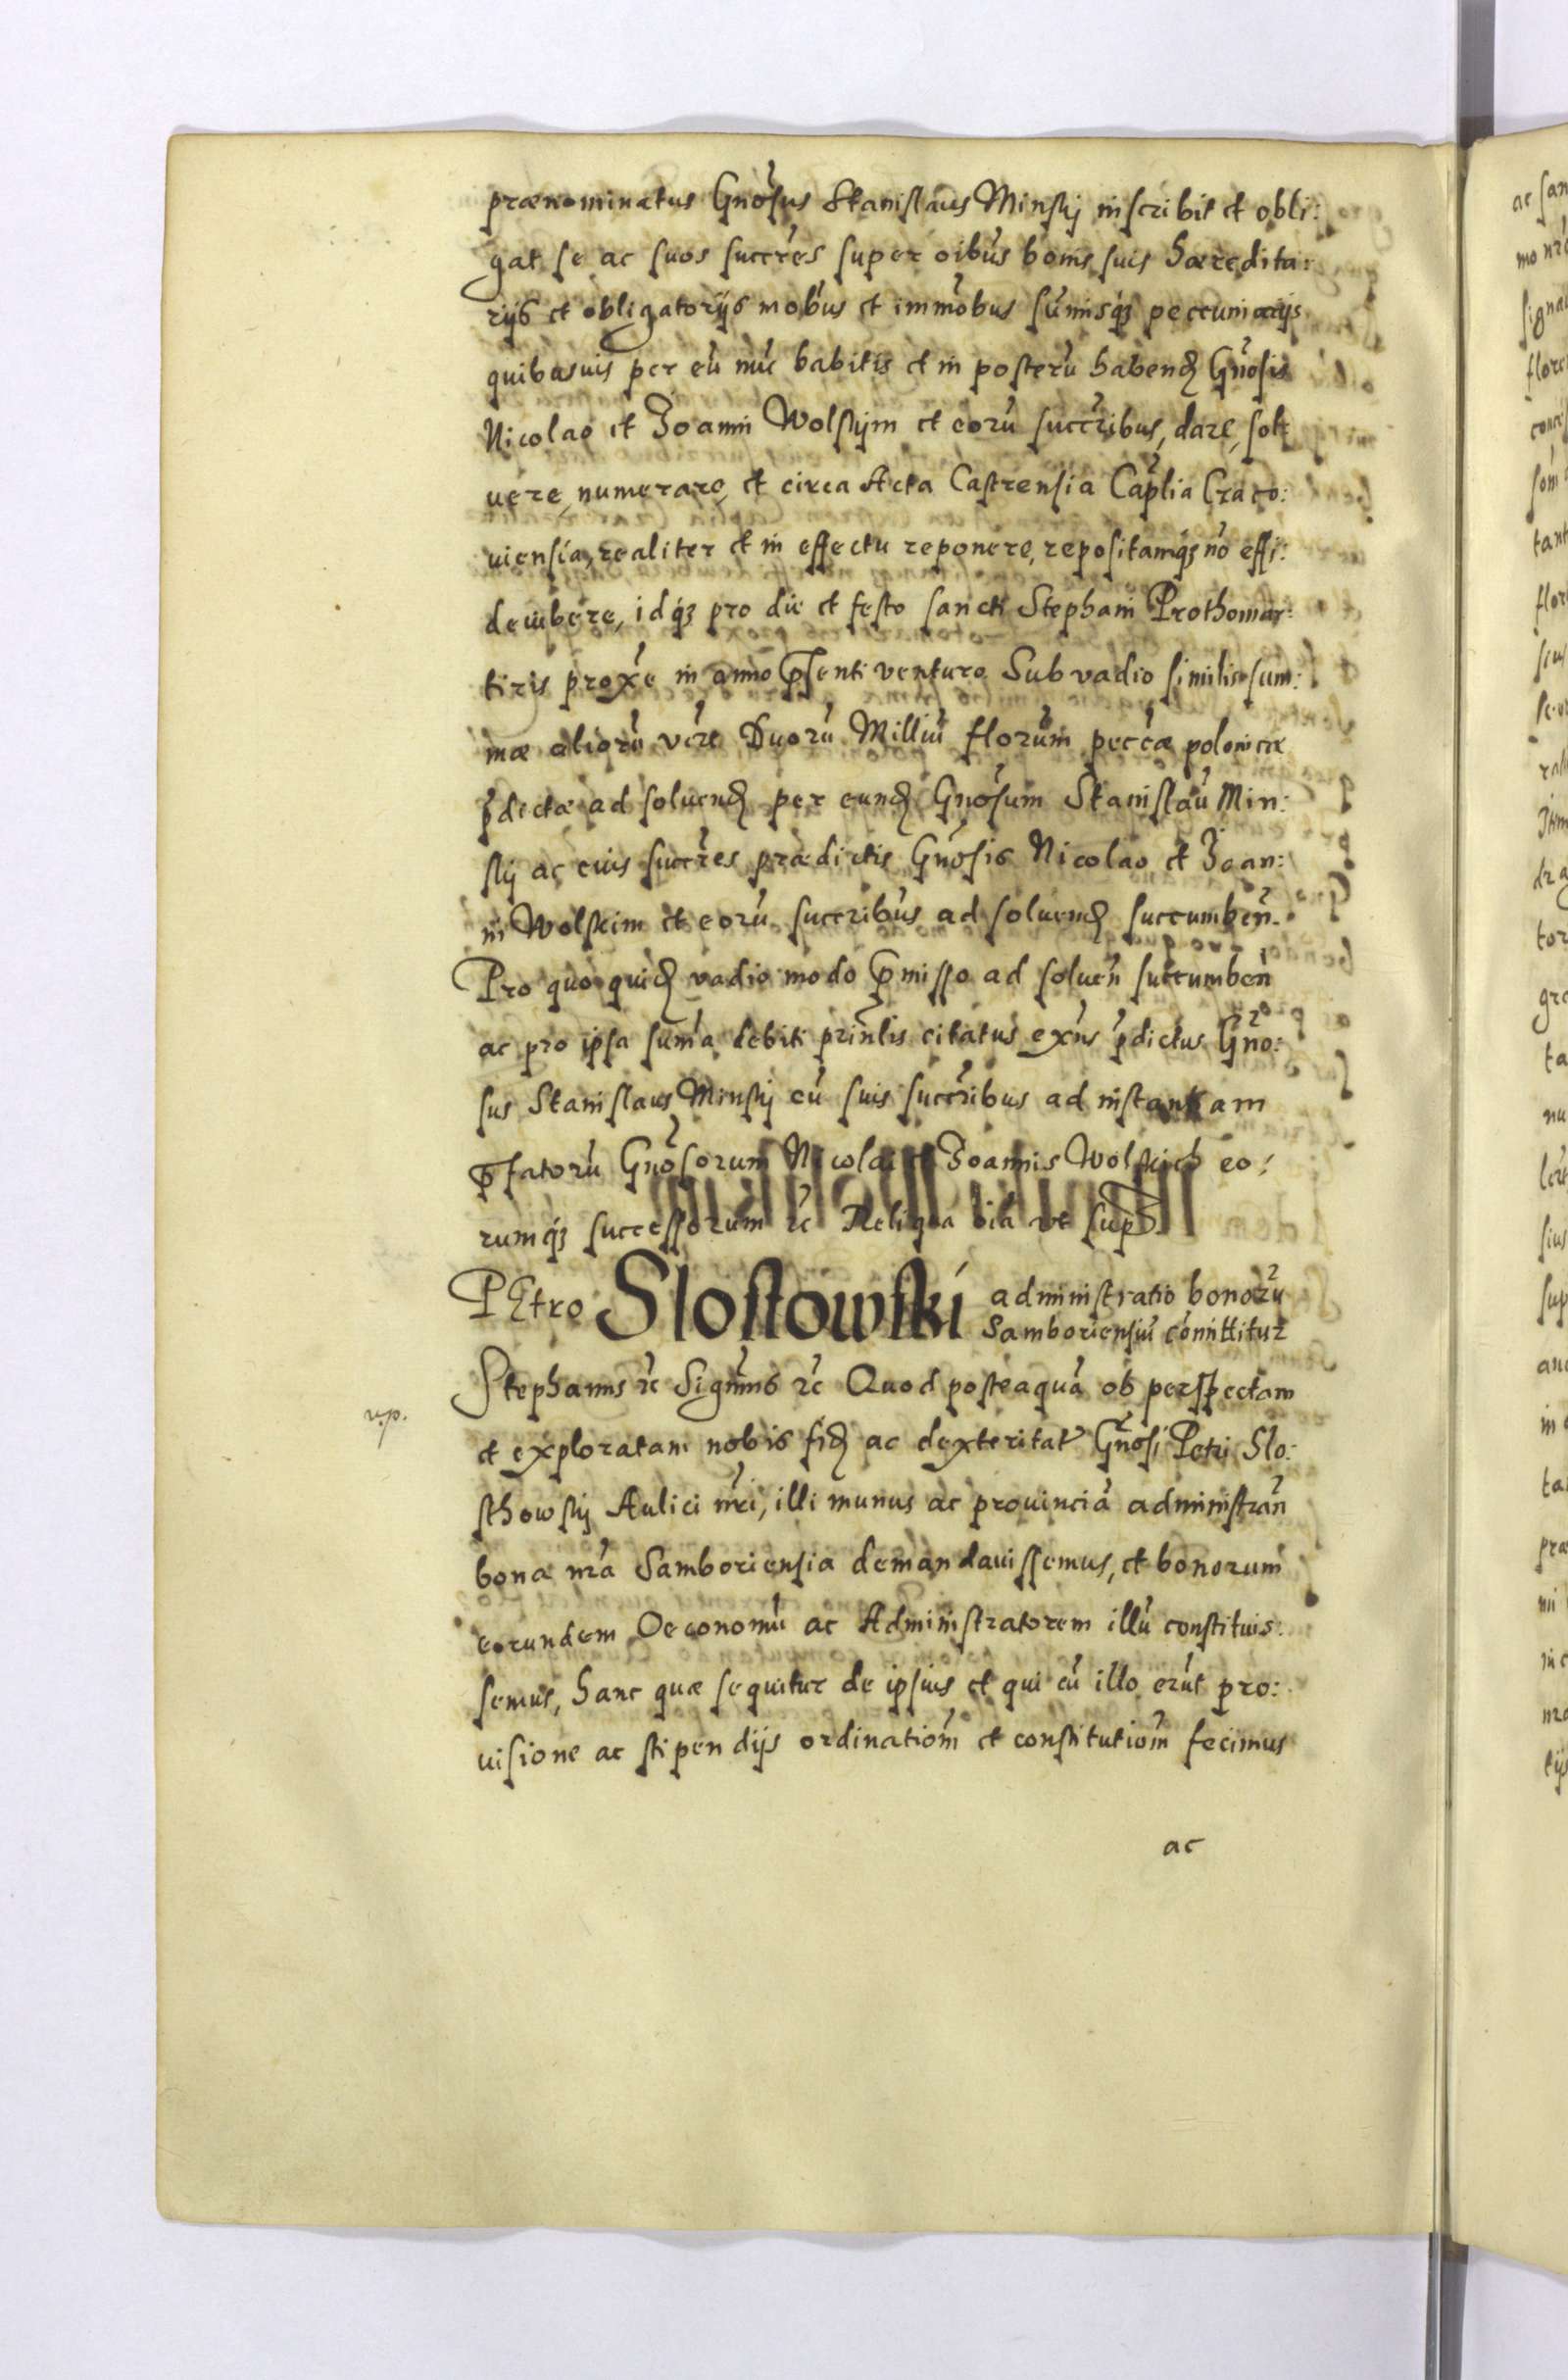 prænominatus Gnõsus Stanislaus Minskij inscribit et obli:
gat se ac suos succres super oibus bonis suis hæredita:
rijs et obligatorijs mobus et immobus sumisq3 peccuniarijs
quibusuis per eũ nũc habitis et in posterũ habend Gnosis
Nicolao et Joanni Wolskijm et eorũ succribus, dare, sol:
uere, numerare, et circa Acta Castrensia Caplia Craco:
uiensia, realiter et in effectu reponere, repositamq3 nõ effi:
deiubere, idq3 pro die et festo sancti Stephani Prothomar:
tiris proxe in anno psenti venturo Sub vadio similis sum:
mæ aliorũ vere Duorũ Milliũ florum peccæ polonicæ
pdictæ ad soluend per eund Gnosum Stanislaũ Min:
skij ac eius succres prædictis Gnosis Nicolao et Joan:
ni Wolskim et eorũ succribus ad soluend succumben.
Pro quo quid vadio modo pmisso ad soluen succumben
ac pro ipsa suma debiti prinlis citatus exns pdictus Gno:
sus Stanislaus Minskij cũ suis succribus ad instantiam
pfatorũ Gnosorum Nicolai et Joannis Wolskich eo:
rumq3 successorum rc Reliqua oia vt sup
PEtro Slostowski administratio bonorũ
Samboriensiũ comittitur
Stephanus rc Signmus rc Quod posteaquã ob perspectam
v.p.
et exploratam nobis fid ac dexteritat Gnosi Petri Slo:
sthowskij Aulici nri, illi munus ac prouinciã administran
bona nra Samboriensia demandauissemus, et bonorum
eorundem Oeconomũ ac Administratorem illũ constituis:
semus, hanc quæ sequitur de ipsius et qui cũ illo erũt pro:
uisione ac stipendijs ordinatiom et constitutiom fecimus
ac